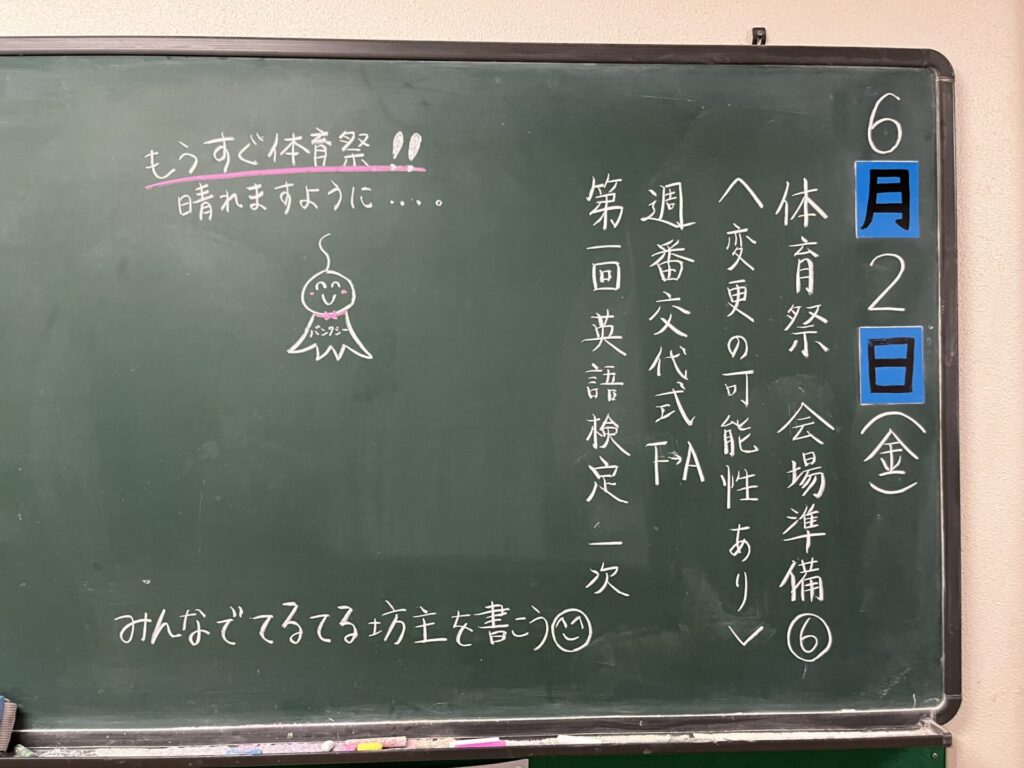 6月2日(金)
体育祭 会場準備⑥
〈変更の可能性あり〉
週番交代式 F→A
第一回英語検定一次
もうすぐ体育祭!!
晴れますように....。
バンクシー
みんなでてるてる坊主を書こう